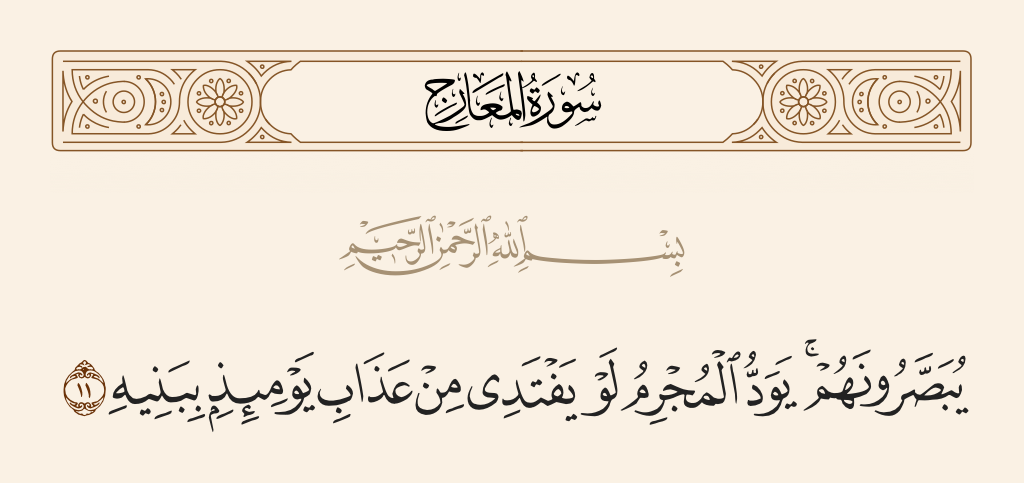 سُورَةُ المَعَارِجِ
بِسْمِ ٱللَّهِ ٱلرَّحْمَٰنِ ٱلرَّحِيمِ
يُبَصَّرُونَهُمْ ۚ يَوَدُّ ٱلْمُجْرِمُ لَوْ يَفْتَدِى مِنْ عَذَابِ يَوْمِئِذٍۭ بِبَنِيهِ ١١